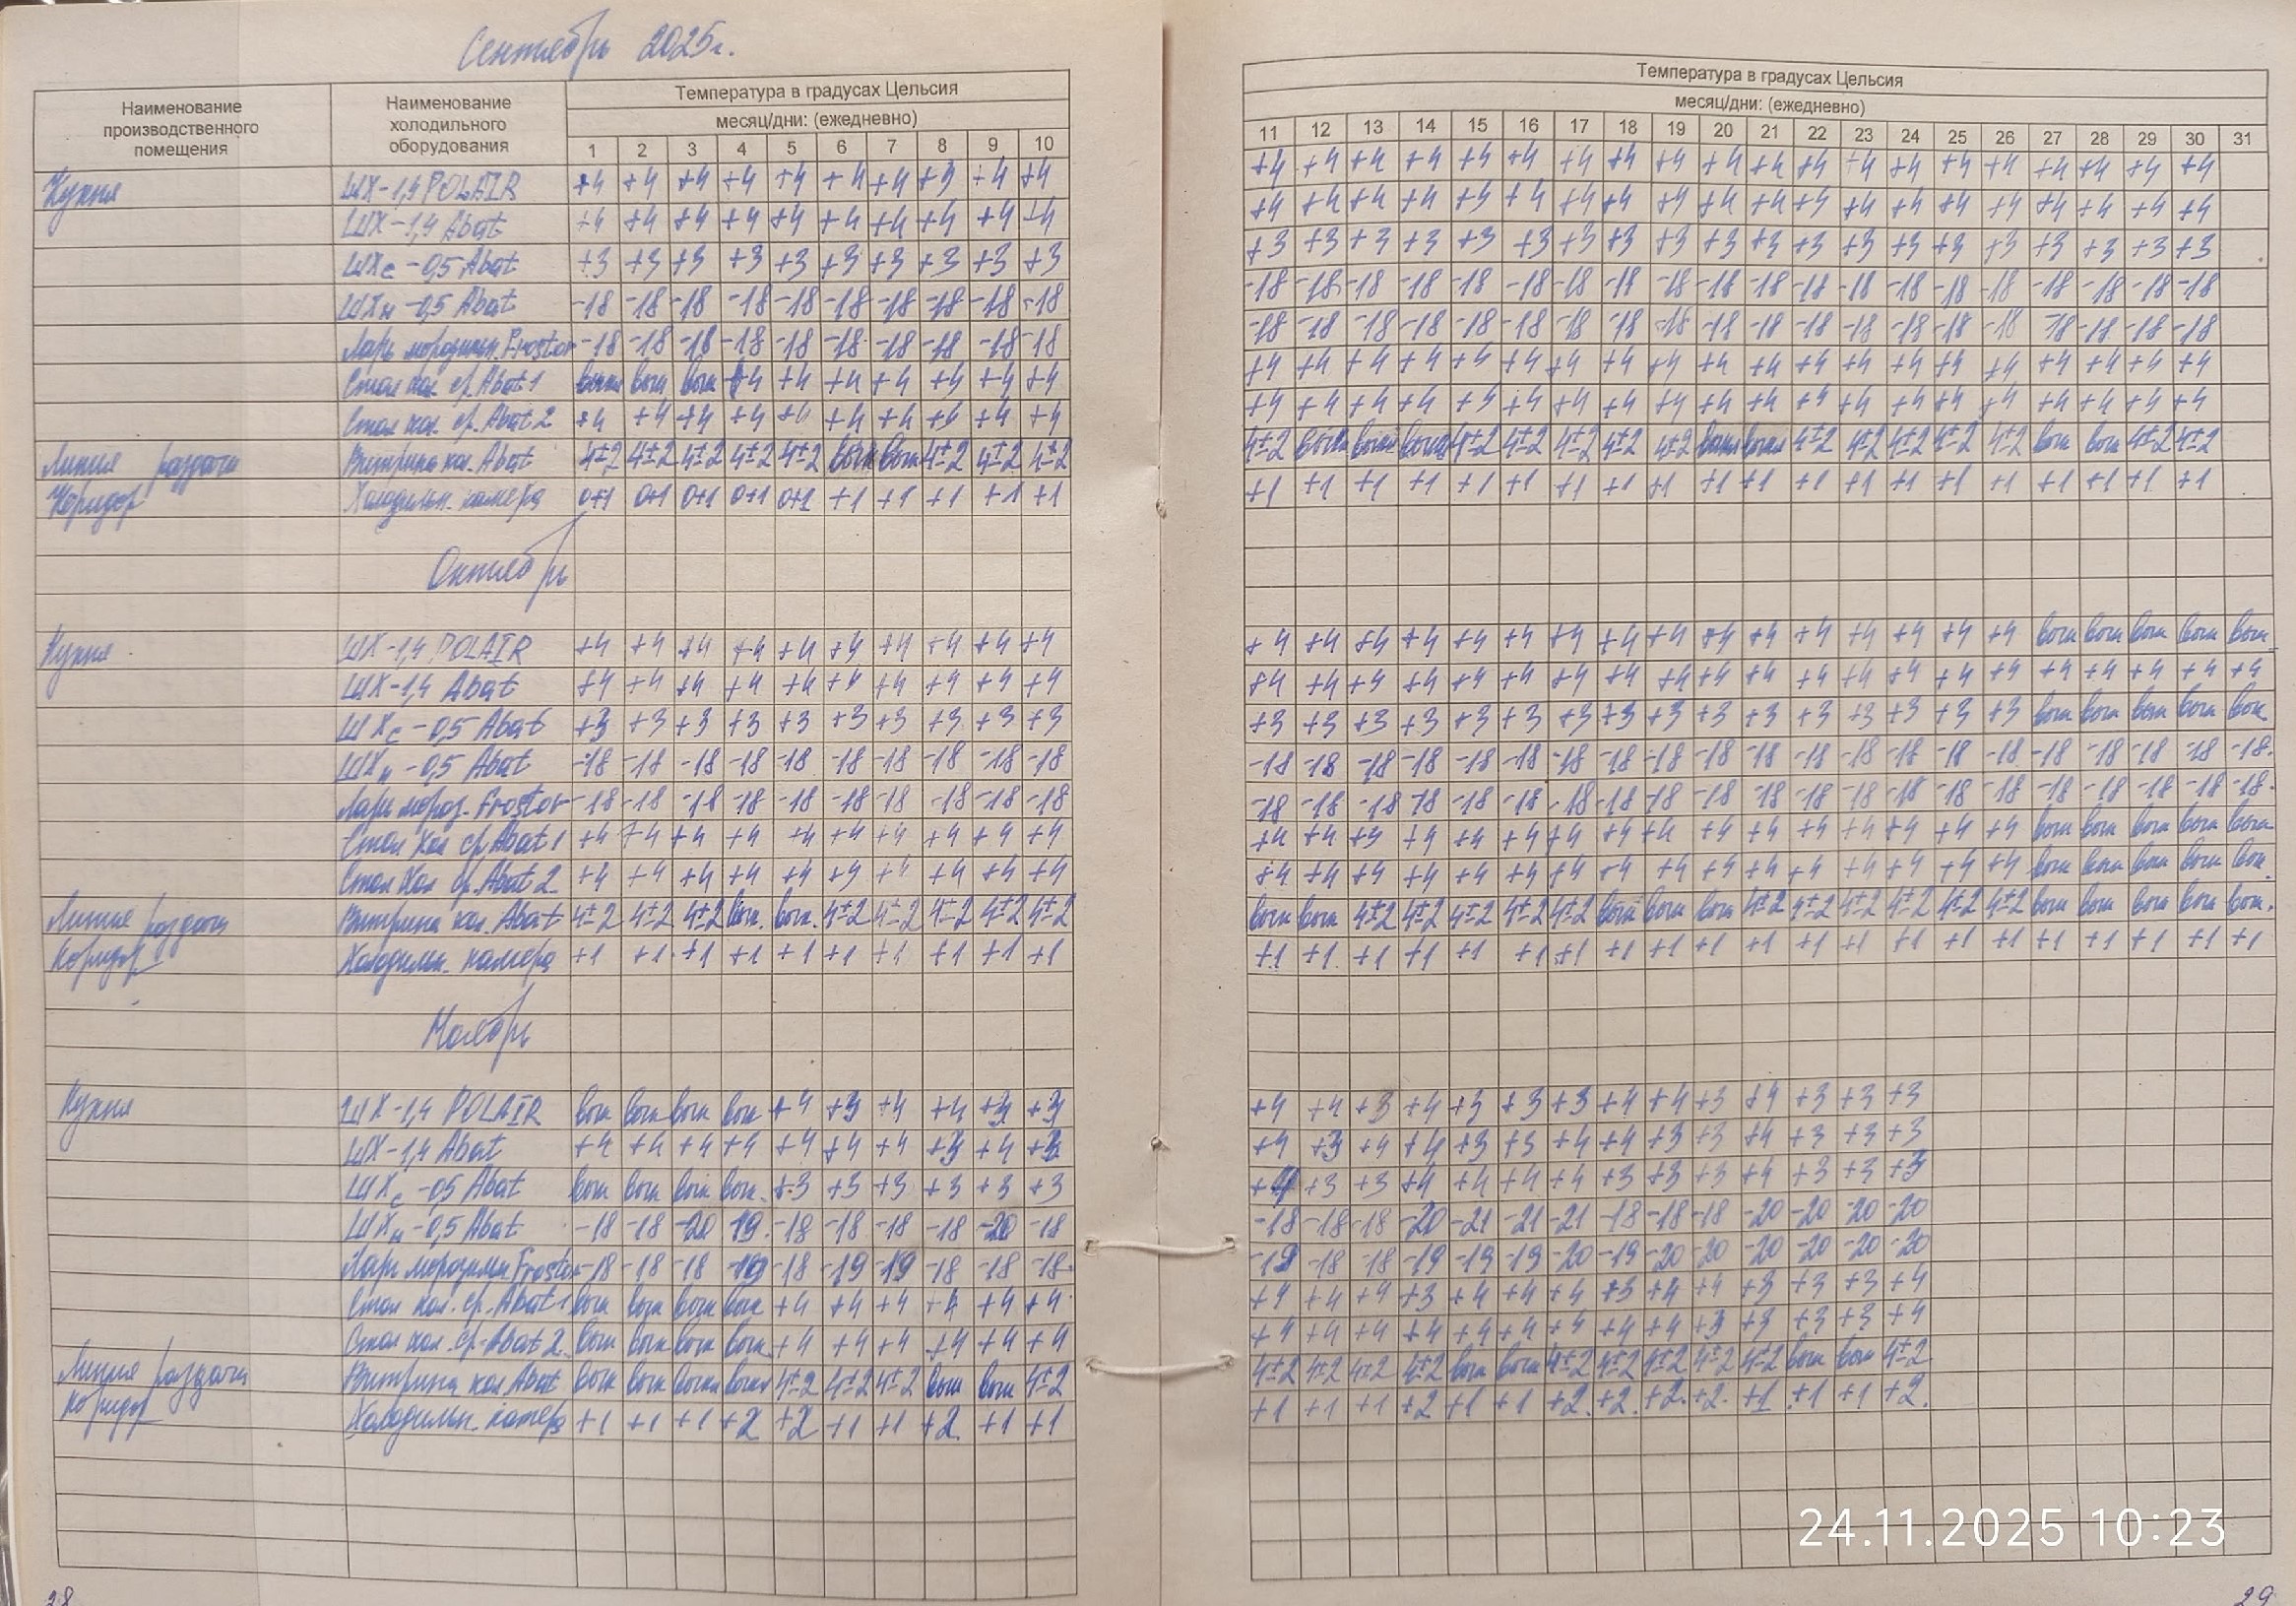 Сентябрь 2025г.
Наименование производственного помещения Наименование холодильного оборудования Температура в градусах Цельсия
месяц/дни: (ежедневно)
1 2 3 4 5 6 7 8 9 10
Температура в градусах Цельсия
месяц/дни: (ежедневно)
11 12 13 14 15 16 17 18 19 20 21 22 23 24 25 26 27 28 29 30 31
Кухня ШХ-1,4 POLAIR +4 +4 +4 +4 +4 +4 +4 +3 +4 +4 +4 +4 +4 +4 +4 +4 +4 +4 +4 +4 +4 +4 +4 +4 +4 +4 +4 +4 +4 +4
ШХ-1,4 Abat +4 +4 +4 +4 +4 +4 +4 +4 +4 +4 +4 +4 +4 +4 +4 +4 +4 +4 +4 +4 +4 +4 +4 +4 +4 +4 +4 +4 +4 +4
ШХс-0,5 Abat +3 +3 +3 +3 +3 +3 +3 +3 +3 +3 +3 +3 +3 +3 +3 +3 +3 +3 +3 +3 +3 +3 +3 +3 +3 +3 +3 +3 +3 +3
ШХн-0,5 Abat -18 -18 -18 -18 -18 -18 -18 -18 -18 -18 -18 -18 -18 -18 -18 -18 -18 -18 -18 -18 -18 -18 -18 -18 -18 -18 -18 -18 -18 -18
Ларь морозильн. Frostor -18 -18 -18 -18 -18 -18 -18 -18 -18 -18 -18 -18 -18 -18 -18 -18 -18 -18 -18 -18 -18 -18 -18 -18 -18 -18 -18 -18 -18 -18
Стол хол. ср. Abat 1 +4 +4 +4 +4 +4 +4 +4 +4 +4 +4 +4 +4 +4 +4 +4 +4 +4 +4 +4 +4 +4 +4 +4 +4 +4 +4 +4
Стол хол. ср. Abat 2 +4 +4 +4 +4 +4 +4 +4 +4 +4 +4 +4 +4 +4 +4 +4 +4 +4 +4 +4 +4 +4 +4 +4 +4 +4 +4 +4 +4 +4 +4
Линия раздачи Витрина хол. Abat 4±2 4±2 4±2 4±2 4±2 4±2 4±2 4±2 4±2 4±2 4±2 4±2 4±2 4±2 4±2 4±2 4±2 4±2 4±2 4±2 4±2
Коридор Холодильн. камера 0+1 0+1 0+1 0+1 0+1 +1 +1 +1 +1 +1 +1 +1 +1 +1 +1 +1 +1 +1 +1 +1 +1 +1 +1 +1 +1 +1 +1 +1 +1 +1
Октябрь
Кухня ШХ-1,4 POLAIR +4 +4 +4 +4 +4 +4 +4 +4 +4 +4 +4 +4 +4 +4 +4 +4 +4 +4 +4 +4 +4 +4 +4 +4 +4 +4
ШХ-1,4 Abat +4 +4 +4 +4 +4 +4 +4 +4 +4 +4 +4 +4 +4 +4 +4 +4 +4 +4 +4 +4 +4 +4 +4 +4 +4 +4 +4 +4 +4 +4 +4
ШХс-0,5 Abat +3 +3 +3 +3 +3 +3 +3 +3 +3 +3 +3 +3 +3 +3 +3 +3 +3 +3 +3 +3 +3 +3 +3 +3 +3 +3
ШХн-0,5 Abat -18 -18 -18 -18 -18 -18 -18 -18 -18 -18 -18 -18 -18 -18 -18 -18 -18 -18 -18 -18 -18 -18 -18 -18 -18 -18 -18 -18 -18 -18 -18
Ларь мороз. Frostor -18 -18 -18 -18 -18 -18 -18 -18 -18 -18 -18 -18 -18 -18 -18 -18 -18 -18 -18 -18 -18 -18 -18 -18 -18 -18 -18 -18 -18 -18 -18
Стол хол ср Abat 1 +4 +4 +4 +4 +4 +4 +4 +4 +4 +4 +4 +4 +4 +4 +4 +4 +4 +4 +4 +4 +4 +4 +4 +4 +4 +4
Стол хол ср. Abat 2 +4 +4 +4 +4 +4 +4 +4 +4 +4 +4 +4 +4 +4 +4 +4 +4 +4 +4 +4 +4 +4 +4 +4 +4 +4 +4
Линия раздачи Витрина хол. Abat 4±2 4±2 4±2 4±2 4±2 4±2 4±2 4±2 4±2 4±2 4±2 4±2 4±2 4±2 4±2 4±2 4±2 4±2 4±2
Коридор Холодильн. камера +1 +1 +1 +1 +1 +1 +1 +1 +1 +1 +1 +1 +1 +1 +1 +1 +1 +1 +1 +1 +1 +1 +1 +1 +1 +1 +1 +1 +1 +1 +1
Ноябрь
Кухня ШХ-1,4 POLAIR +4 +3 +4 +4 +3 +3 +4 +4 +3 +4 +3 +3 +3 +4 +4 +3 +4 +3 +3 +3
ШХ-1,4 Abat +4 +4 +4 +4 +4 +4 +4 +3 +4 +3 +4 +3 +4 +4 +3 +3 +4 +4 +3 +3 +4 +3 +3 +3
ШХс-0,5 Abat +3 +3 +3 +3 +3 +3 +4 +3 +3 +4 +4 +4 +4 +3 +3 +3 +4 +3 +3 +3
ШХн-0,5 Abat -18 -18 -20 -19 -18 -18 -18 -18 -20 -18 -18 -18 -18 -20 -21 -21 -21 -18 -18 -18 -20 -20 -20 -20
Ларь морозильн Frostor -18 -18 -18 -19 -18 -19 -19 -18 -18 -18 -19 -18 -18 -19 -19 -19 -20 -19 -20 -20 -20 -20 -20 -20
Стол хол. ср. Abat 1 +4 +4 +4 +4 +4 +4 +4 +4 +4 +3 +4 +4 +4 +3 +4 +4 +3 +3 +3 +4
Стол хол ср. Abat 2 +4 +4 +4 +4 +4 +4 +4 +4 +4 +4 +4 +4 +4 +4 +4 +3 +3 +3 +3 +4
Линия раздачи Витрина хол Abat 4±2 4±2 4±2 4±2 4±2 4±2 4±2 4±2 4±2 4±2 4±2 4±2 4±2 4±2
Коридор Холодильн. камера +1 +1 +1 +2 +2 +1 +1 +2 +1 +1 +1 +1 +1 +2 +1 +1 +2 +2 +2 +2 +1 +1 +1 +2
24.11.2025 10:23
28
29